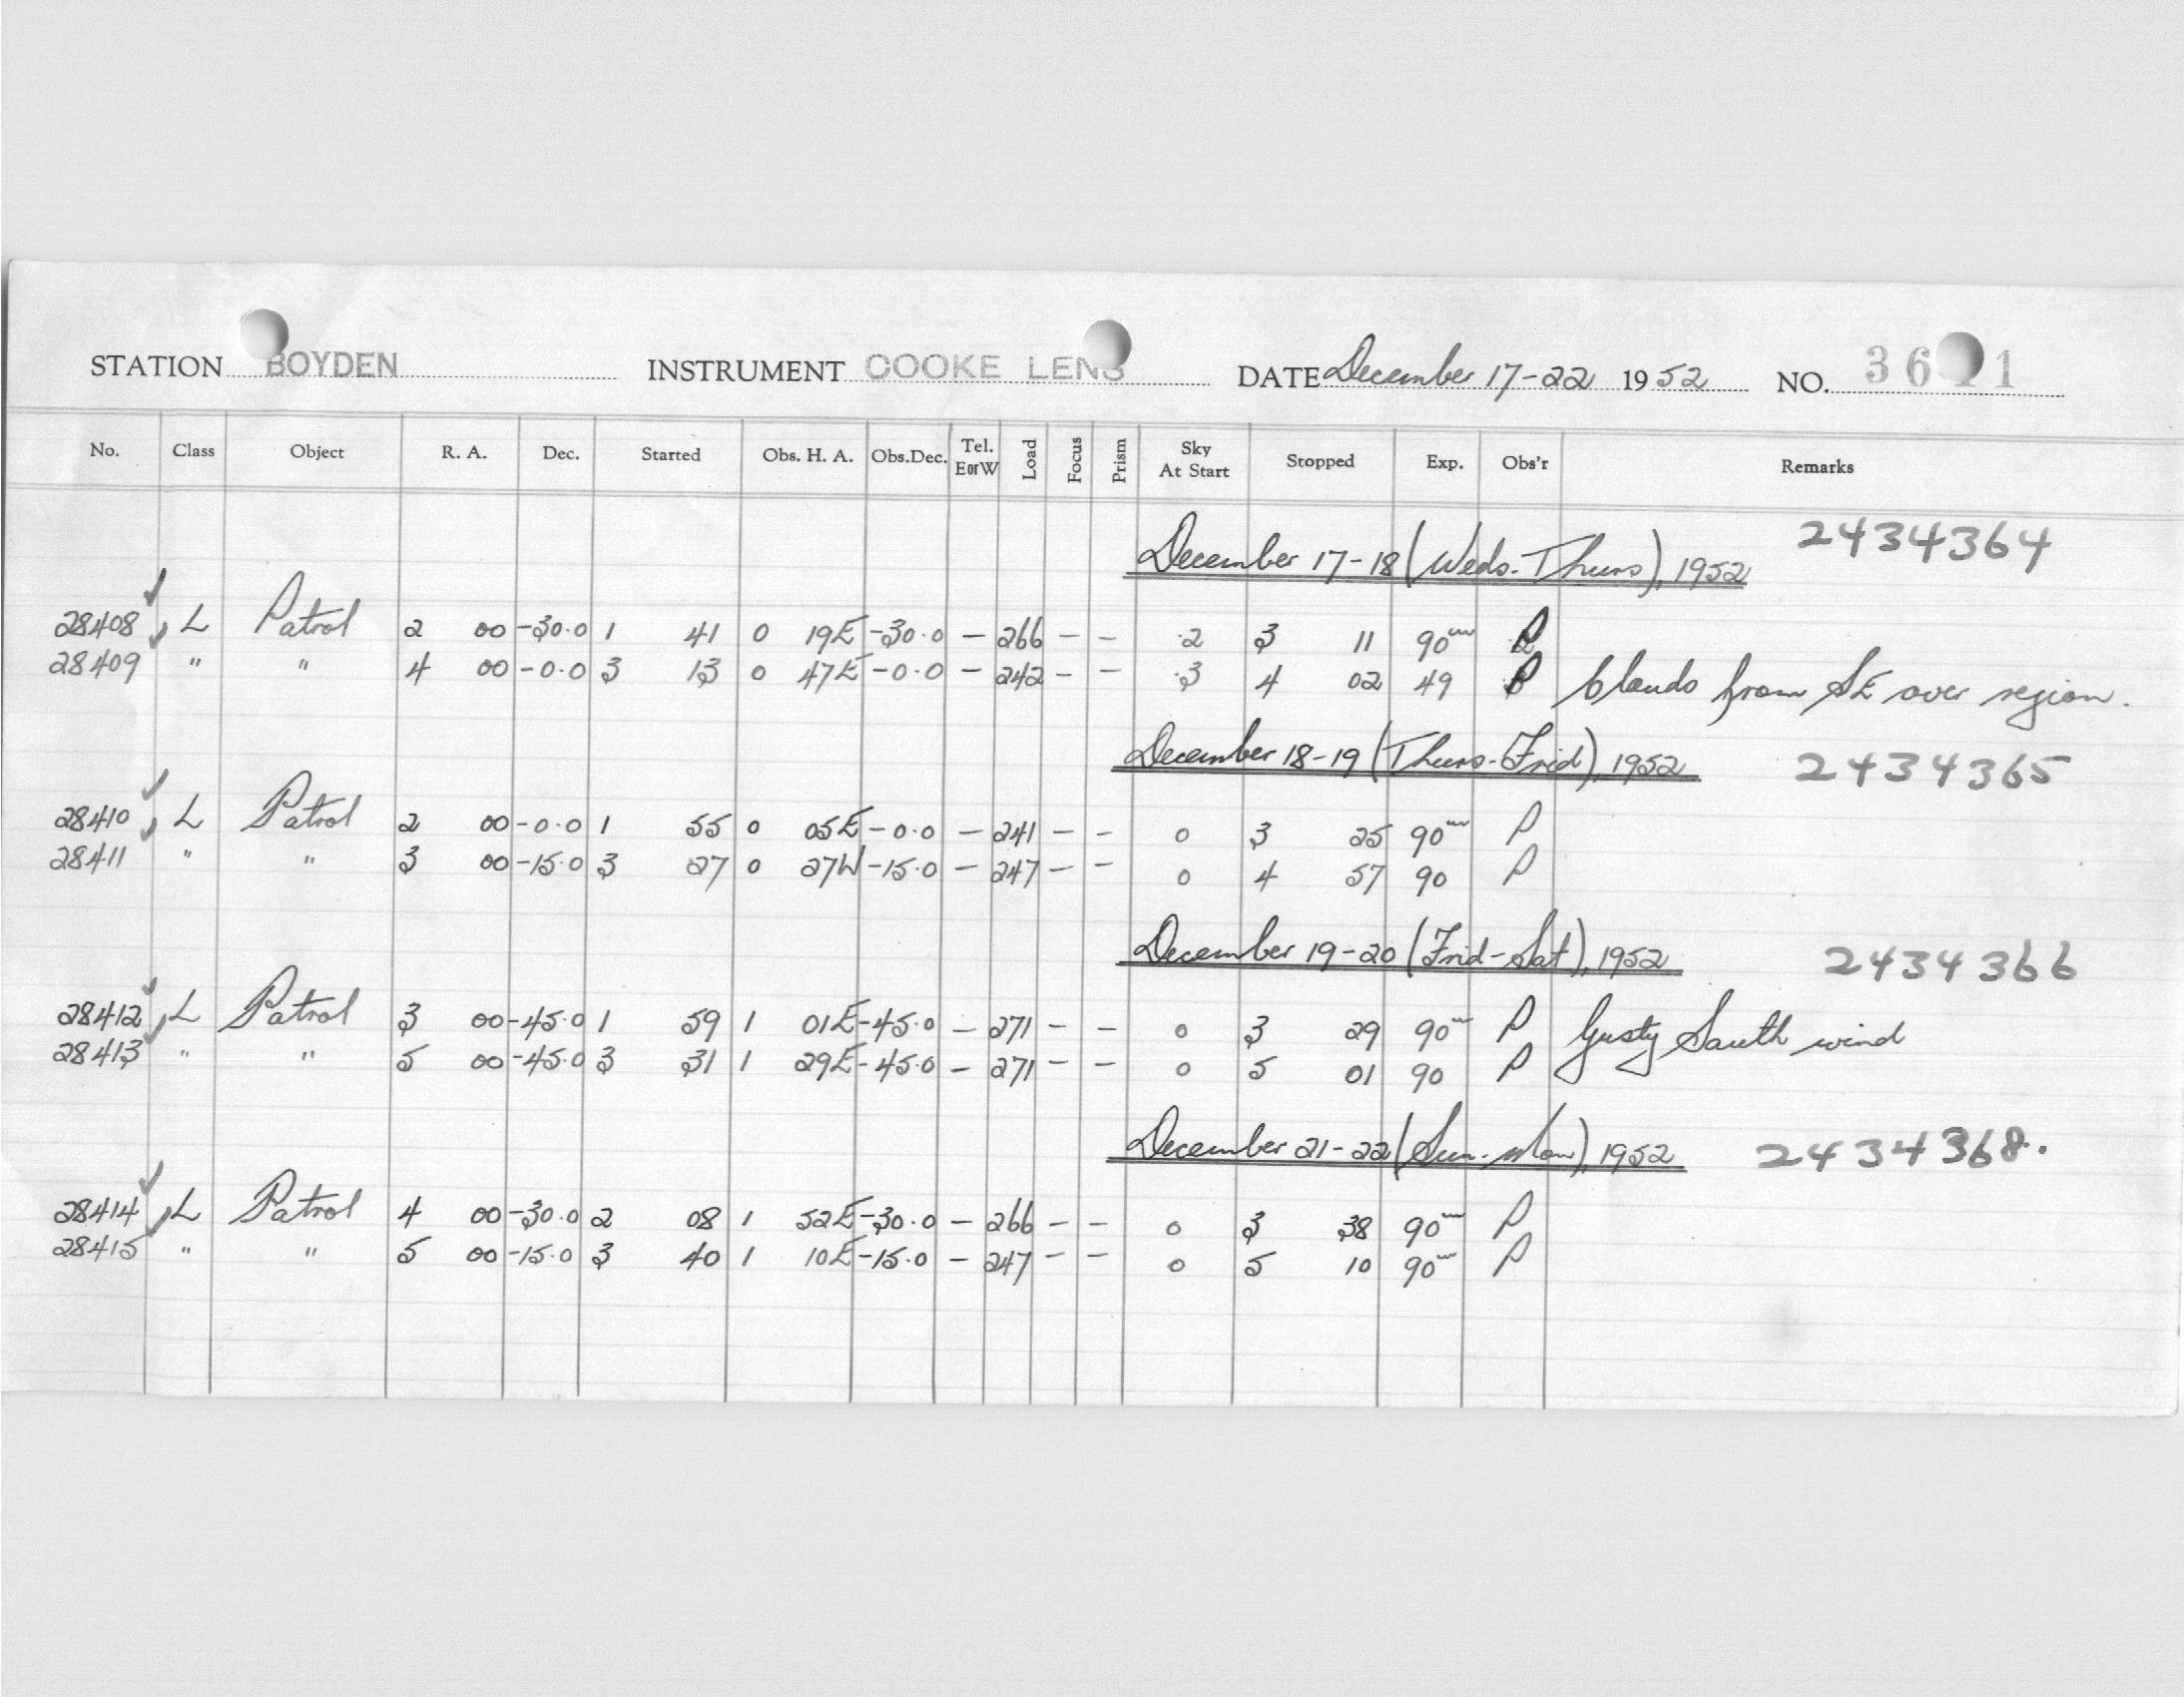 STATION BOYDEN INSTRUMENT COOKE LENS DATE December 17-22 1952 NO. 36 1
No. Class Object R. A. Dec. Started Obs. H. A. Obs.Dec. Tel. EorW Load Focus Prism Sky At Start Stopped Exp. Obs'r Remarks
December 17-18 (Weds-Thurs), 1952 2434364
28408 L Patrol 2 00 -30.0 1 41 0 19E -30.0 - 266 - - 2 3 11 90m P
28409 " " 4 00 -0.0 3 13 0 47E -0.0 - 242 - - 3 4 02 49 P Clouds from SE over region.
December 18-19 (Thurs-Frid), 1952 2434365
28410 L Patrol 2 00 -0.0 1 55 0 05E -0.0 - 241 - - 0 3 25 90m P
28411 " " 3 00 -15.0 3 27 0 27W -15.0 - 247 - - 0 4 57 90 P
December 19-20 (Frid-Sat), 1952 2434366
28412 L Patrol 3 00 -45.0 1 59 1 01E -45.0 - 271 - - 0 3 29 90m P Gusty South wind
28413 " " 5 00 -45.0 3 31 1 29E -45.0 - 271 - - 0 5 01 90 P
December 21-22 (Sun-Mon), 1952 2434368.
28414 L Patrol 4 00 -30.0 2 08 1 52E -30.0 - 266 - - 0 3 38 90m P
28415 " " 5 00 -15.0 3 40 1 10E -15.0 - 247 - - 0 5 10 90m P